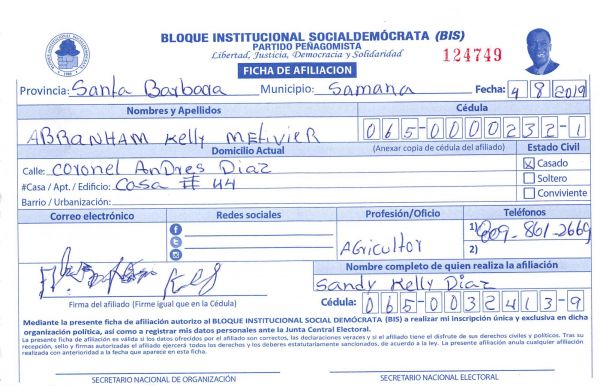 BLOQUE INSTITUCIONAL SOCIALDEMÓCRATA (BIS)
PARTIDO PEÑAGOMISTA
Libertad, Justicia, Democracia y Solidaridad
124749
FICHA DE AFILIACION
Provincia: Santa Barbara Municipio: Samana Fecha: 4 8 2019
Nombres y Apellidos Cédula
ABRANHAM Kelly MELIVIER 065-0000232-1
Domicilio Actual (Anexar copia de cédula del afiliado) Estado Civil
Calle: Coronel AnDres Diaz
Casado
#Casa / Apt. / Edificio: Casa # 44
Soltero
Barrio / Urbanización:
Conviviente
Correo electrónico Redes sociales Profesión/Oficio Teléfonos
AGricultor
1) 809-861-2669
2)
Nombre completo de quien realiza la afiliación
Sandy Kelly Diaz
Firma del afiliado (Firme igual que en la Cédula)
Cédula: 065-0032413-9
Mediante la presente ficha de afiliación autorizo al BLOQUE INSTITUCIONAL SOCIALDEMÓCRATA (BIS) a realizar mi inscripción única y exclusiva en dicha
organización política, así como a registrar mis datos personales ante la Junta Central Electoral.
La presente ficha de afiliación es válida si los datos ofrecidos por el afiliado son correctos, las declaraciones veraces y si el afiliado tiene el disfrute de sus derechos civiles y políticos. Tras su
recepción, sello y firmas autorizadas el afiliado ejercerá todos los derechos y los deberes estatutariamente sancionados, de acuerdo a la ley. La presente afiliación anula cualquier afiliación
realizada con anterioridad a la fecha que aparece en esta ficha.
SECRETARIO NACIONAL DE ORGANIZACIÓN SECRETARIO NACIONAL ELECTORAL